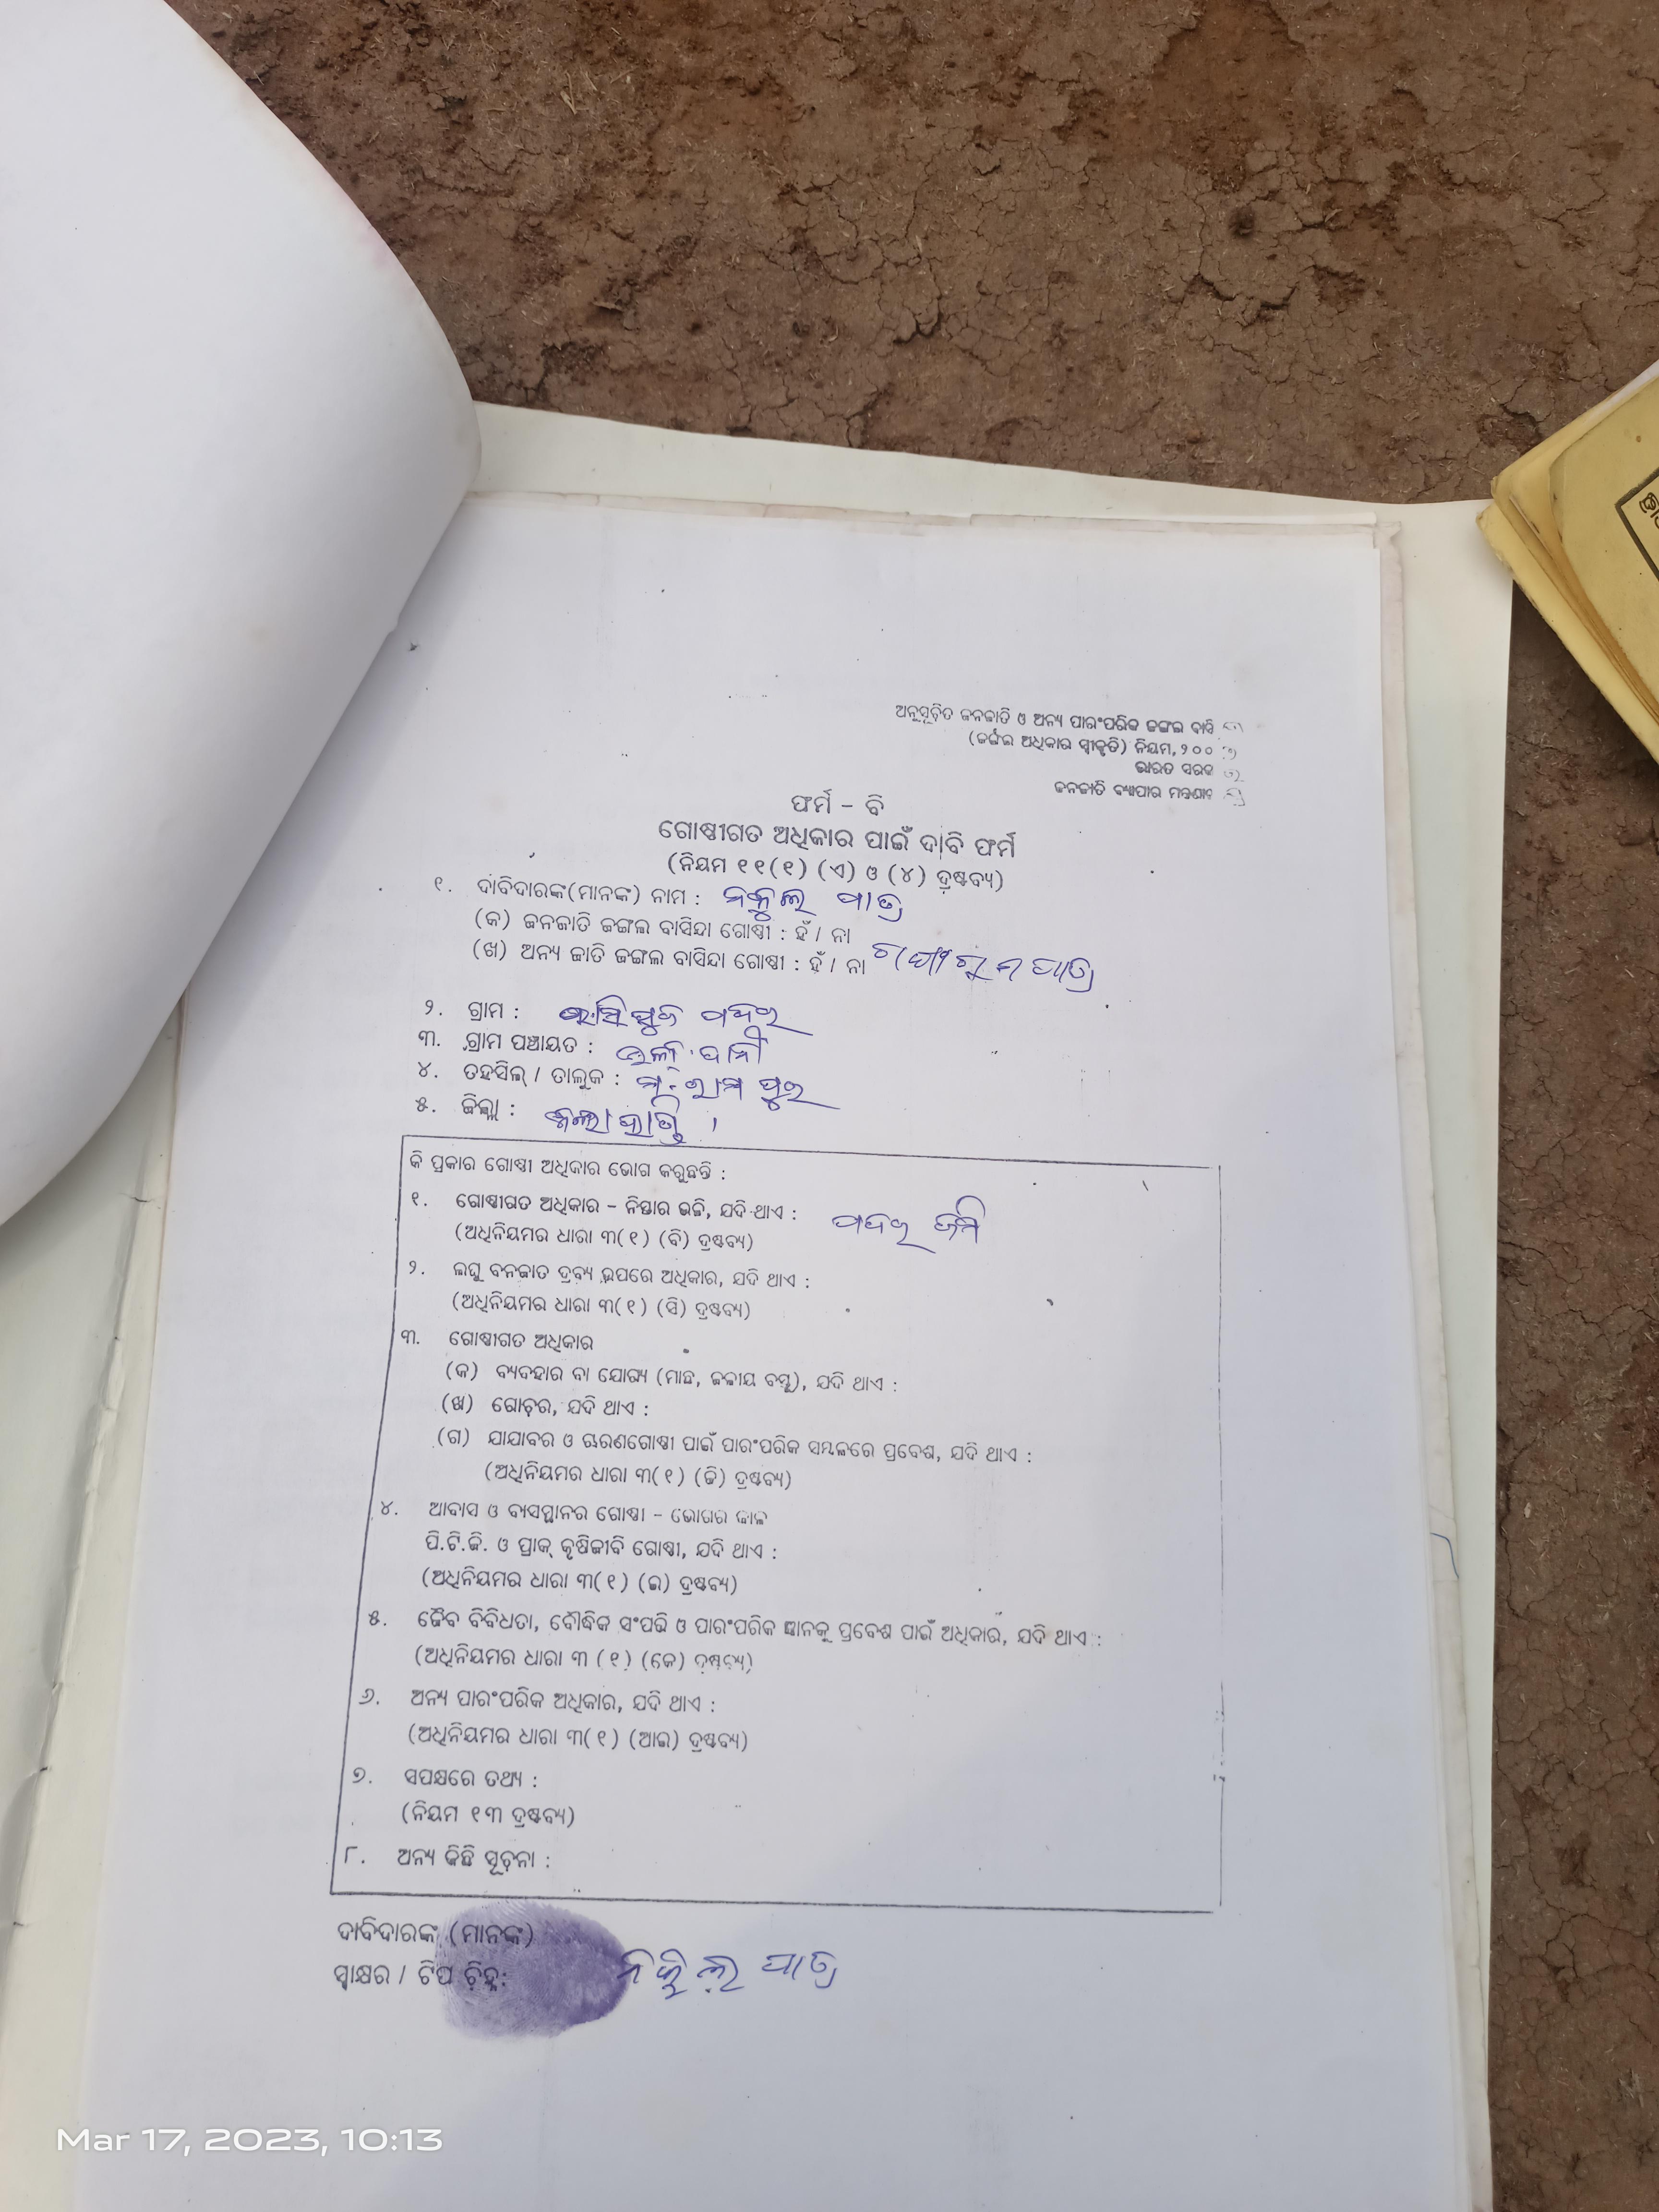 ଅନୁସୂଚିତ ଜନଜାତି ଓ ଅନ୍ୟ ପାରଂପରିକ ଜଙ୍ଗଲ ବାସି
(ଜଙ୍ଗଲ ଅଧିକାର ସ୍ୱୀକୃତି) ନିୟମ, ୨୦୦
ଭାରତ ସରକ
ଜନଜାତି ବ୍ୟାପାର ମନ୍ତ୍ରଣା
ଫର୍ମ – ବି
ଗୋଷ୍ଠୀଗତ ଅଧିକାର ପାଇଁ ଦାବି ଫର୍ମ
(ନିୟମ ୧୧(୧) (ଏ) ଓ (୪) ଦ୍ରଷ୍ଟବ୍ୟ)
୧. ଦାବିଦାରଙ୍କ(ମାନଙ୍କ) ନାମ : ନକୁଲ ପାତ୍ର
(କ) ଜନଜାତି ଜଙ୍ଗଲ ବାସିନ୍ଦା ଗୋଷ୍ଠୀ : ହଁ / ନା
(ଖ) ଅନ୍ୟ ଜାତି ଜଙ୍ଗଲ ବାସିନ୍ଦା ଗୋଷ୍ଠୀ : ହଁ / ନା ପାତ୍ର
୨. ଗ୍ରାମ : ପଦର
୩. ଗ୍ରାମ ପଞ୍ଚାୟତ :
୪. ତହସିଲ୍ / ତାଲୁକ : ମ. ରାମ ପୁର
୫. ଜିଲ୍ଲା : କଳାହାଣ୍ଡି ।
କି ପ୍ରକାର ଗୋଷ୍ଠୀ ଅଧିକାର ଭୋଗ କରୁଛନ୍ତି :
୧. ଗୋଷ୍ଠୀଗତ ଅଧିକାର – ନିସ୍ତାର ଭଳି, ଯଦି ଥାଏ : ପଦର ଜମି
(ଅଧିନିୟମର ଧାରା ୩(୧) (ବି) ଦ୍ରଷ୍ଟବ୍ୟ)
୨. ଲଘୁ ବନଜାତ ଦ୍ରବ୍ୟ ଉପରେ ଅଧିକାର, ଯଦି ଥାଏ :
(ଅଧିନିୟମର ଧାରା ୩(୧) (ସି) ଦ୍ରଷ୍ଟବ୍ୟ)
୩. ଗୋଷ୍ଠୀଗତ ଅଧିକାର
(କ) ବ୍ୟବହାର ବା ଯୋଗ୍ୟ (ମାଛ, ଜଳୀୟ ବସ୍ତୁ), ଯଦି ଥାଏ :
(ଖ) ଗୋଚର, ଯଦି ଥାଏ :
(ଗ) ଯାଯାବର ଓ ଚାରଣଗୋଷ୍ଠୀ ପାଇଁ ପାରଂପରିକ ସମ୍ବଳରେ ପ୍ରବେଶ, ଯଦି ଥାଏ :
(ଅଧିନିୟମର ଧାରା ୩(୧) (ଡି) ଦ୍ରଷ୍ଟବ୍ୟ)
୪. ଆବାସ ଓ ବାସସ୍ଥାନର ଗୋଷ୍ଠୀ – ଭୋଗର କାଳ
ପି.ଟି.ଜି. ଓ ପ୍ରାକ୍ କୃଷିଜୀବି ଗୋଷ୍ଠୀ, ଯଦି ଥାଏ :
(ଅଧିନିୟମର ଧାରା ୩(୧) (ଇ) ଦ୍ରଷ୍ଟବ୍ୟ)
୫. ଜୈବ ବିବିଧତା, ବୌଦ୍ଧିକ ସଂପତ୍ତି ଓ ପାରଂପରିକ ଜ୍ଞାନକୁ ପ୍ରବେଶ ପାଇଁ ଅଧିକାର, ଯଦି ଥାଏ :
(ଅଧିନିୟମର ଧାରା ୩ (୧) (କେ) ଦ୍ରଷ୍ଟବ୍ୟ)
୬. ଅନ୍ୟ ପାରଂପରିକ ଅଧିକାର, ଯଦି ଥାଏ :
(ଅଧିନିୟମର ଧାରା ୩(୧) (ଆଇ) ଦ୍ରଷ୍ଟବ୍ୟ)
୭. ସପକ୍ଷରେ ତଥ୍ୟ :
(ନିୟମ ୧୩ ଦ୍ରଷ୍ଟବ୍ୟ)
୮. ଅନ୍ୟ କିଛି ସୂଚନା :
ଦାବିଦାରଙ୍କ (ମାନଙ୍କ)
ସ୍ୱାକ୍ଷର / ଟିପ ଚିହ୍ନ: ପାତ୍ର
Mar 17, 2023, 10:13